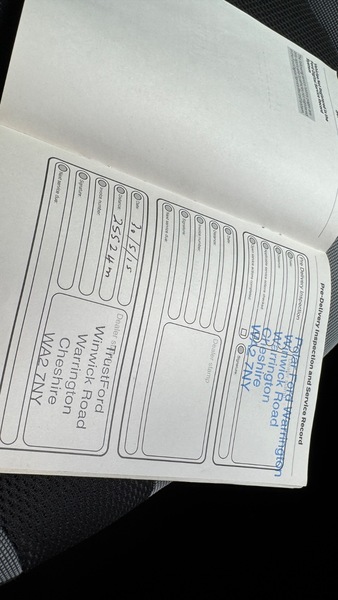 Pre-Delivery Inspection and Service Record
Pre Delivery Inspection
Polar Ford Warrington
Winwick Road
Warrington
Cheshire
WA2 7NY
Date
Distance
Invoice number
Signature
Next service due
Dealer stamp
Date 20/5/15
Distance 25524m
Invoice number
Signature
Next service due
Dealer st
TrustFord
Winwick Road
Warrington
Cheshire
WA2 7NY